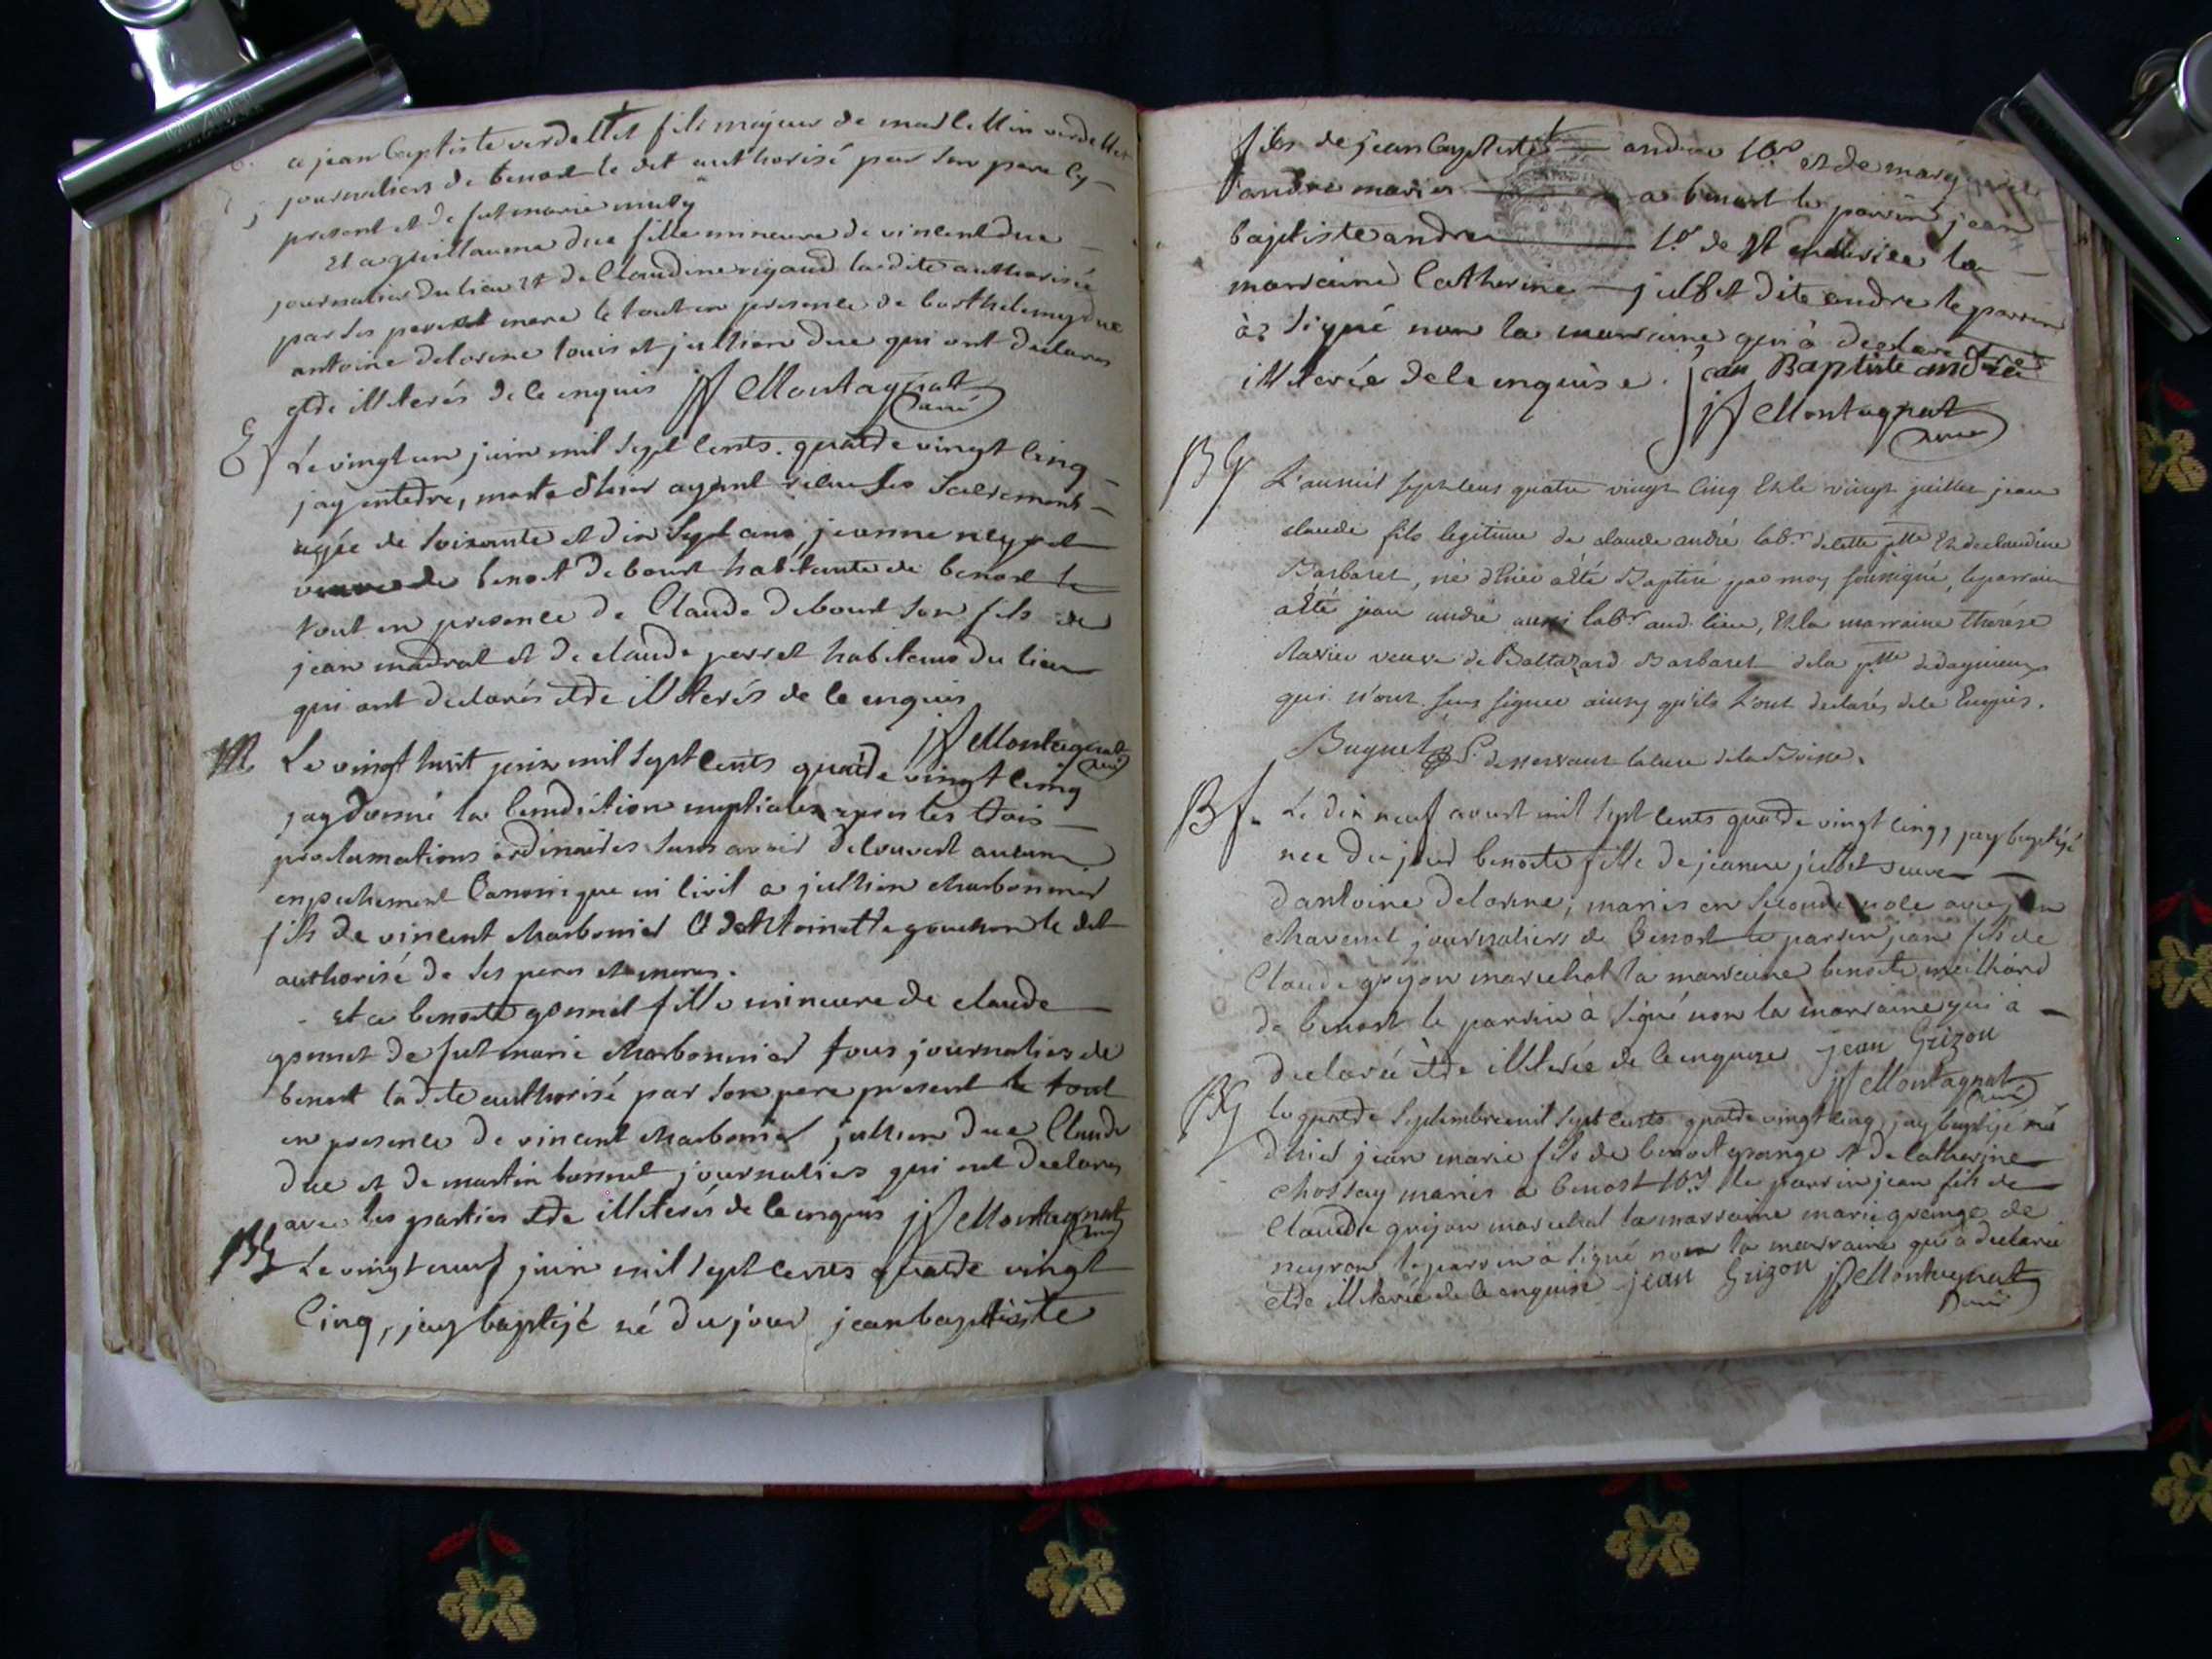 a jean baptiste verdellet fils majeur de marcellin verdellet
journaliers de benost le dit authorisé par son pere cy
present et de fut marie
Et a guillaume due fille mineure de vincent due
journalier du lieu et de Claudine rigaud la dite authorisée
par ses pere et mere le tout en presence de barthelemy due
antoine delorme louis et jullien due qui ont declarés
etre illiterés de ce enquis jf Montagnat
curé
E Le vingt un juin mil sept cents quatre vingt cinq
jay enterré, morte d'hier ayant recue ses sacrements
agée de soixante et dix sept ans, jeanne neyret
veuve de benost debourt habitante de benost le
tout en presence de Claude debourt son fils de
jean madrat et de claude perret habitans du lieu
qui ont declarés etre illiterés de ce enquis
jf Montagnat
curé
M Le vingt huit juin mil sept cents quatre vingt cinq
jay donné la benediction nuptiale apres les trois
proclamations ordinaires sans avoir decouvert aucun
enpechement Canonique ni civil a jullien charbonnier
fils de vincent charbonier et d'Antoinette gouchon le dit
authorisé de ses peres et meres.
Et a benoite gonnet fille mineure de claude
gonnet de fut marie charbonnier tous journaliers de
benost la dite authorisé par son pere present le tout
en presence de vincent charbonier jullien due Claude
due et de martin bonnet journaliers qui ont declarés
avec les parties etre illiterés de ce enquis jf Montagnat
curé
BG Le vingt neuf juin mil sept cents quatre vingt
Cinq, jay baptijé né du jour jean baptiste
fils de jean baptiste andrea lbr et de marg
andre maries a benost le parrin jean
baptiste andrea lbr de la
marraine Catherine julliet dite andre le parrin
à signé non la marraine qui à declaré etre
illiterée de ce enquise. jean Baptiste andrea
jf Montagnat
curé
BG L'an mil sept cens quatre vingt cinq Et le vingt juillet jean
claude fils legitime de claude andré labr de cette psse Et de claudine
Barbaret, né d'hier a été Baptisé par moy soussigné, le parrain
a été jean andré aussi labr aud. lieu, Et la marraine thérése
veuve de Baltazard Barbaret de la psse de dagnieux
qui n'ont sceu signer ainsy qu'ils l'ont declarés de ce Enquis.
Buynet P. desservant la cure de la Boisse.
Bf. Le dix neuf avout mil sept cents quatre vingt cinq, jay baptijé
nee du jour benoite fille de jeanne julliet veuve
d'antoine delorme, maries en seconde noce avec
chavent journaliers de benost le parrin jean fils de
Claude grijon marechal la marraine benoite meilliard
de benost le parrin à signé non la marraine qui à
declarée être illiterée de ce enquise jean Grizon
jf Montagnat
curé
BG le quatre septembre mil sept cents quatre vingt cinq, jay baptijé né
d'hier jean marie fils de benost grange et de Catherine
chossay maries a benost lbr le parrin jean fils de
Claude grijon marechal la marraine marie grange de
neyron le parrin a signé non la marraine qui a declarée
etre illiterée de ce enquise jean Grizon jf Montagnat
curé